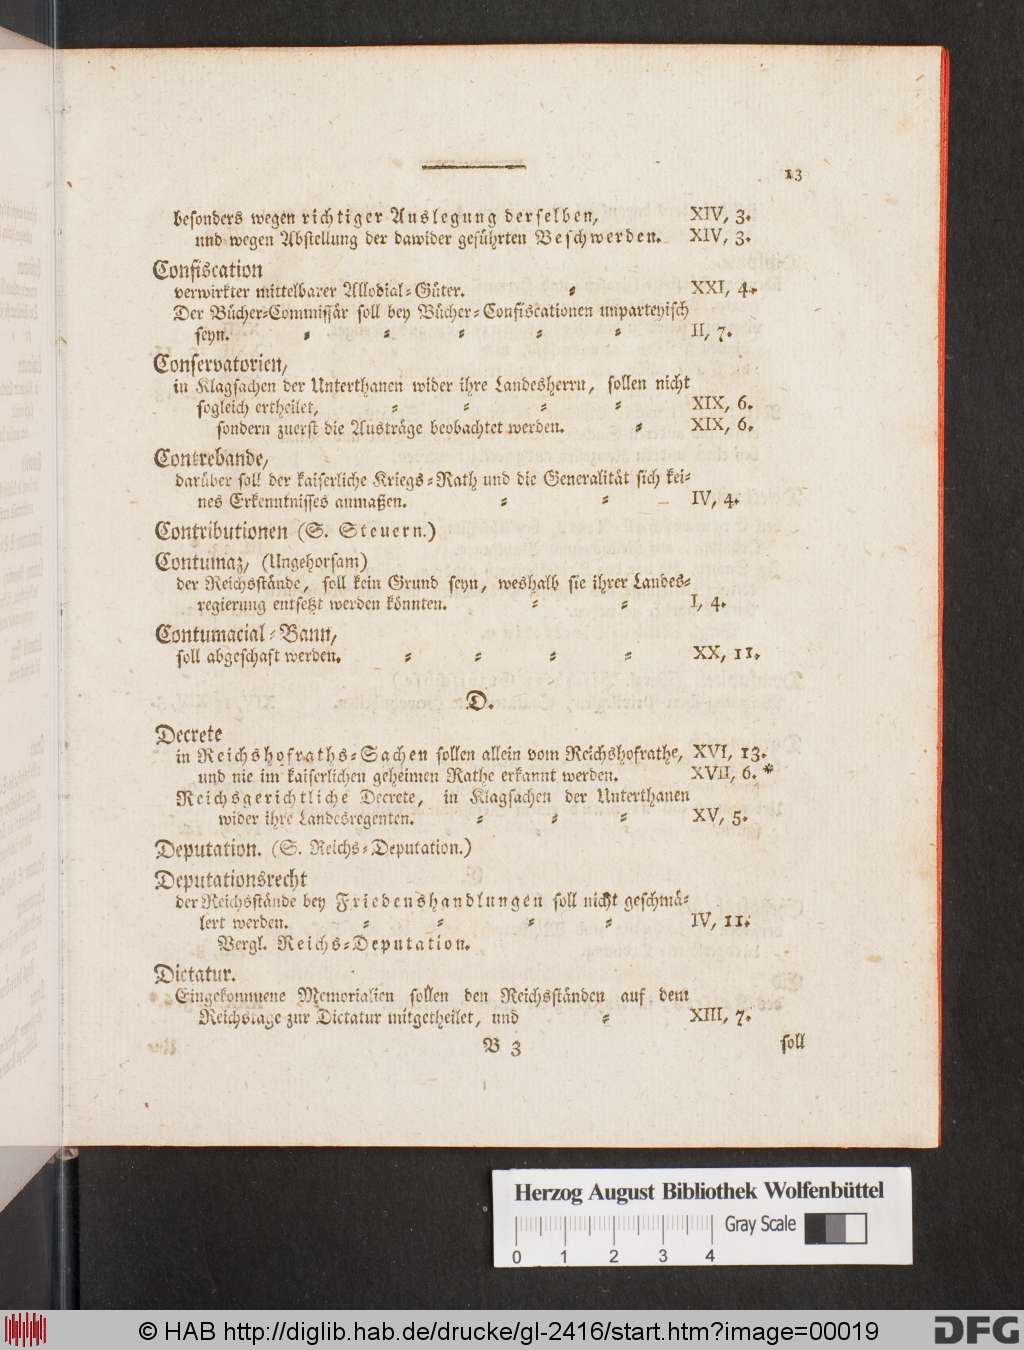 13
besonders wegen richtiger Auslegung derselben, XIV, 3.
und wegen Abstellung der dawider geführten Beschwerden. XIV, 3.
Confiscation
verwirkter mittelbarer Allodial-Güter. = XXI, 4.
Der Bücher-Commissär soll bey Bücher-Confiscationen unparteyisch
seyn. = = = = = II, 7.
Conservatorien,
in Klagsachen der Unterthanen wider ihre Landesherrn, sollen nicht
sogleich ertheilet, = = = = XIX, 6.
sondern zuerst die Austräge beobachtet werden. = XIX, 6.
Contrebande,
darüber soll der kaiserliche Kriegs-Rath und die Generalität sich kei-
nes Erkenntnisses anmaßen. = = IV, 4.
Contributionen (S. Steuern.)
Contumaz, (Ungehorsam)
der Reichsstände, soll kein Grund seyn, weshalb sie ihrer Landes-
regierung entsetzt werden könnten. = = I, 4.
Contumacial-Bann,
soll abgeschaft werden. = = = = XX, 11.
D.
Decrete
in Reichshofraths-Sachen sollen allein vom Reichshofrathe, XVI, 13.
und nie im kaiserlichen geheimen Rathe erkannt werden. XVII, 6. *
Reichsgerichtliche Decrete, in Klagsachen der Unterthanen
wider ihre Landesregenten. = = = XV, 5.
Deputation. (S. Reichs-Deputation.)
Deputationsrecht
der Reichsstände bey Friedenshandlungen soll nicht geschmä-
lert werden. = = = = IV, 11.
Vergl. Reichs-Deputation.
Dictatur.
Eingekommene Memorialien sollen den Reichsständen auf dem
Reichstage zur Dictatur mitgetheilet, und = XIII, 7.
B 3 soll
Herzog August Bibliothek Wolfenbüttel
Gray Scale
0 1 2 3 4
© HAB http://diglib.hab.de/drucke/gl-2416/start.htm?image=00019
DFG